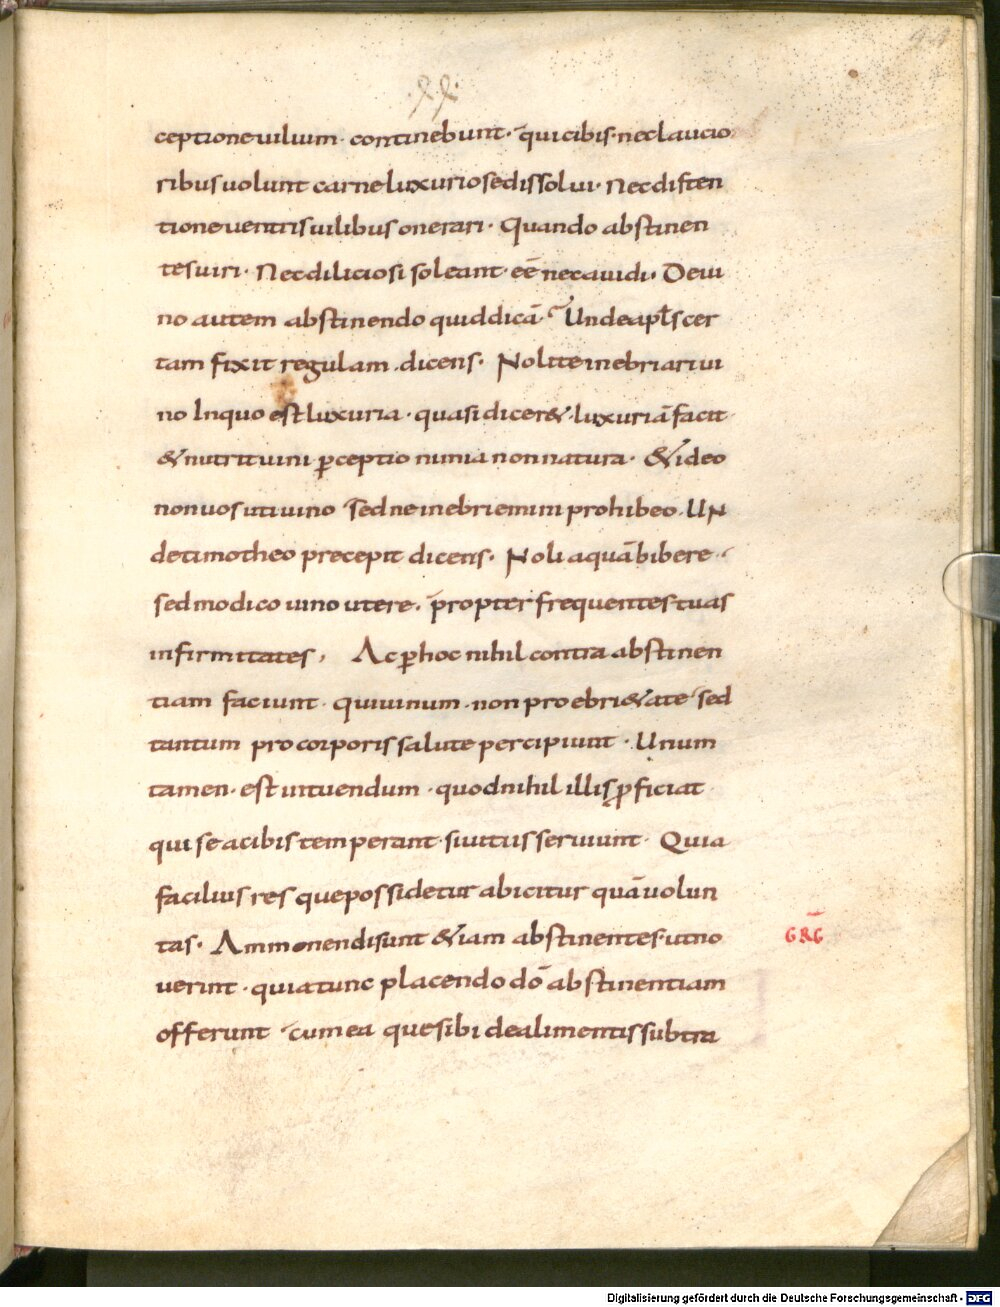 44
ceptione uilium. continebunt. qui cibis. nec laucio
ribus uolunt carne luxuriose dissolui. Nec disten
tione uentris uilibus onerari. Quando abstinen
tes uiri. Nec diliciosi soleant. eē nec auidi. De ui
no autem abstinendo quid dicā. Unde apłs cer
tam fixit regulam. dicens. Nolite inebriari ui
no In quo est luxuria. quasi diceret. luxuriā facit
& nutrit uini ꝑceptio nimia non natura. & ideo
non uos uti uino sed ne inebriemini prohibeo. UN
de timotheo precepit dicens. Noli aquā bibere.
sed modico uino utere. propter frequentes tuas
infirmitates, Ac ꝑ hoc nihil contra abstinen
tiam faciunt. qui uinum. non pro ebri&ate sed
tantum pro corporis salute percipiunt. Unum
tamen. est intuendum. quod nihil illis ꝓficiat
qui se a cibis temperant. si uitiis seruiunt. Quia
facilius res que possidetur abicitur quā uolun
tas. Ammonendi sunt &iam abstinentes. ut no
uerint. quia tunc placendo dō abstinentiam
offerunt cum ea que sibi de alimentis subtra
GRḠ
Digitalisierung gefördert durch die Deutsche Forschungsgemeinschaft - DFG